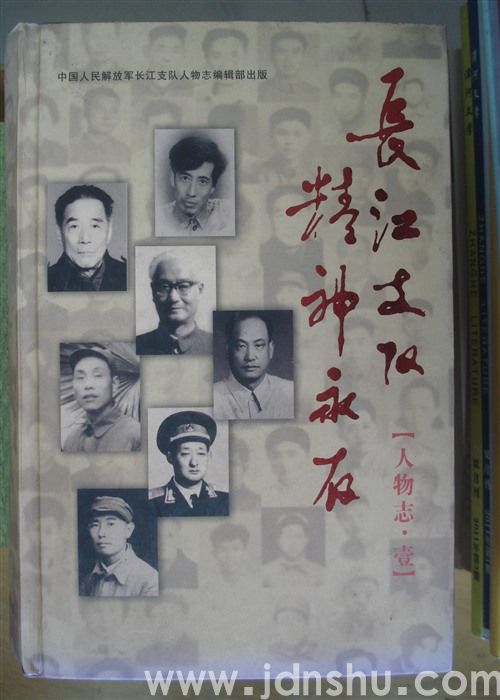 中国人民解放军长江支队人物志编辑部出版
長江支队
精神永存
【人物志·壹】
ZHANGHE LITERATURE
www.jdnshu.com